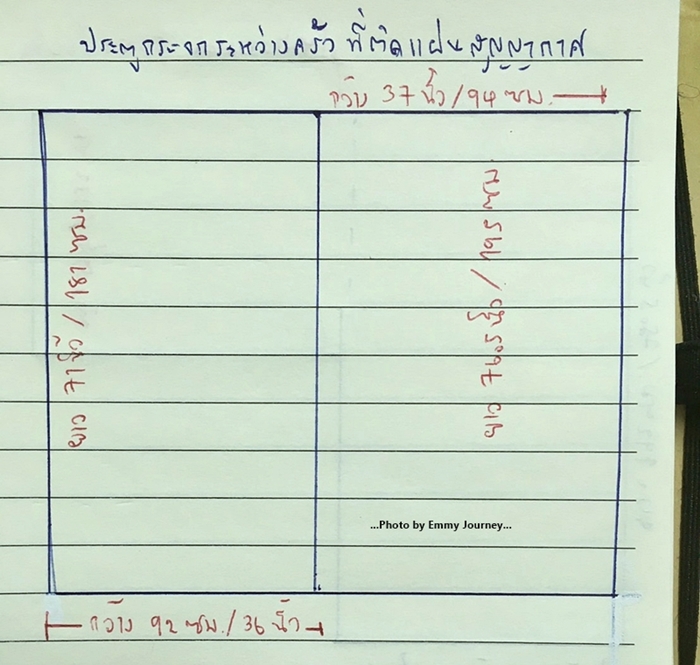 ประตูกระจกระหว่างครัว ที่ติดแผ่นสูญญากาศ
กว้าง 37 นิ้ว / 94 ซม.
ยาว 71 นิ้ว / 181 ซม.
ยาว 76.5 นิ้ว / 195 ซม
...Photo by Emmy Journey...
กว้าง 92 ซม. / 36 นิ้ว